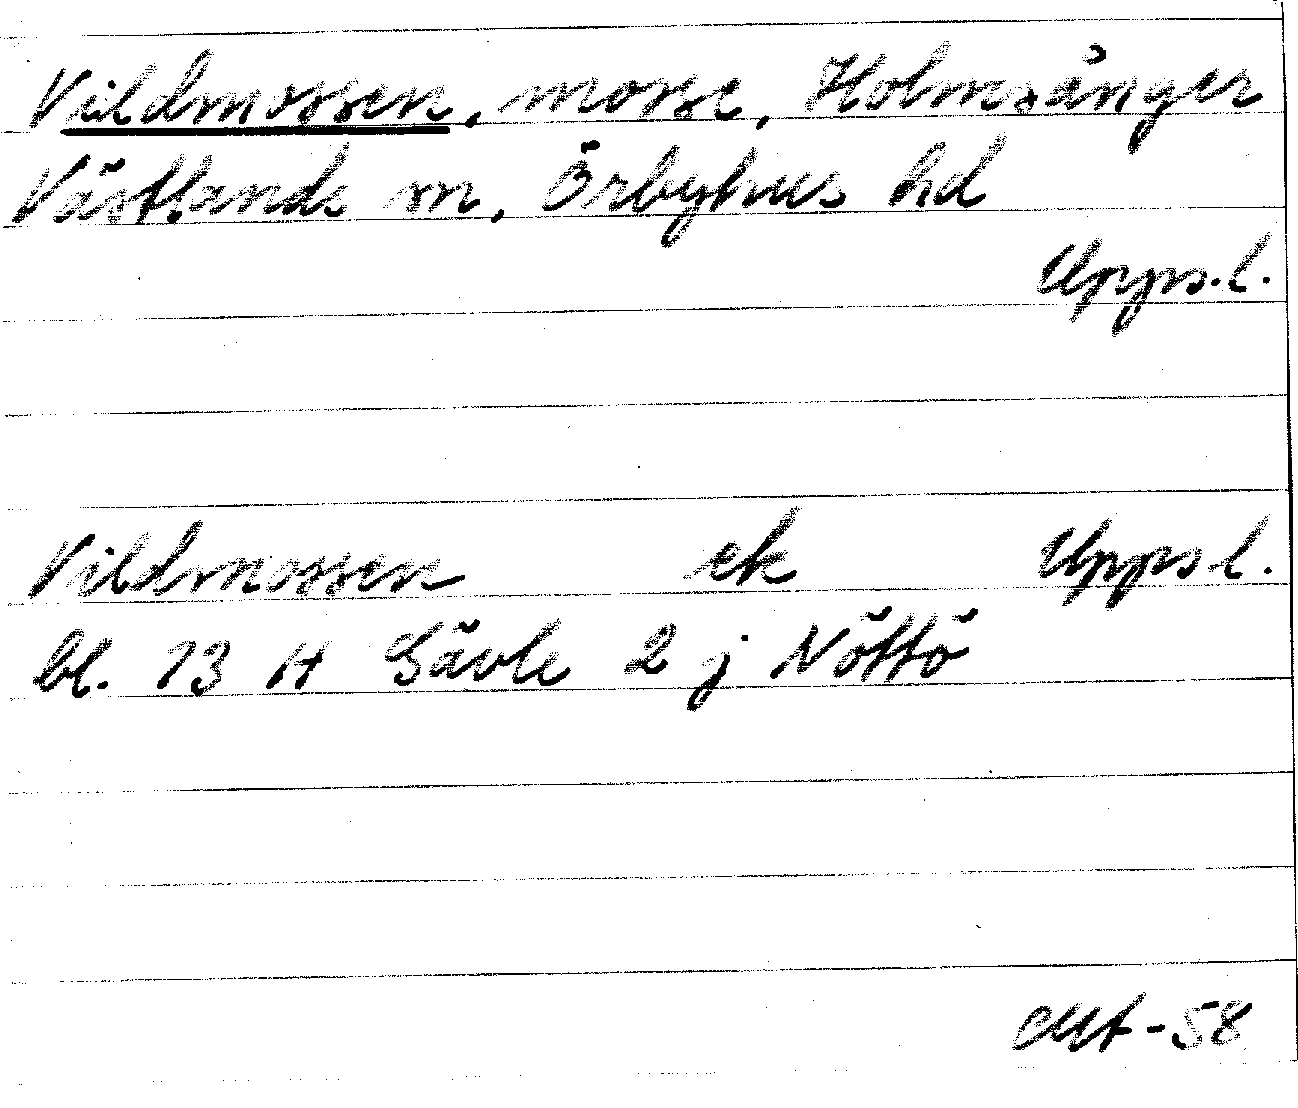 Vildmossen, mosse, Holmsånger
Västlands sn, Örbyhus hd
Upps.l.
Vildmossen ek Upps l.
bl. 13 H Gävle 2 j Nöttö
-58